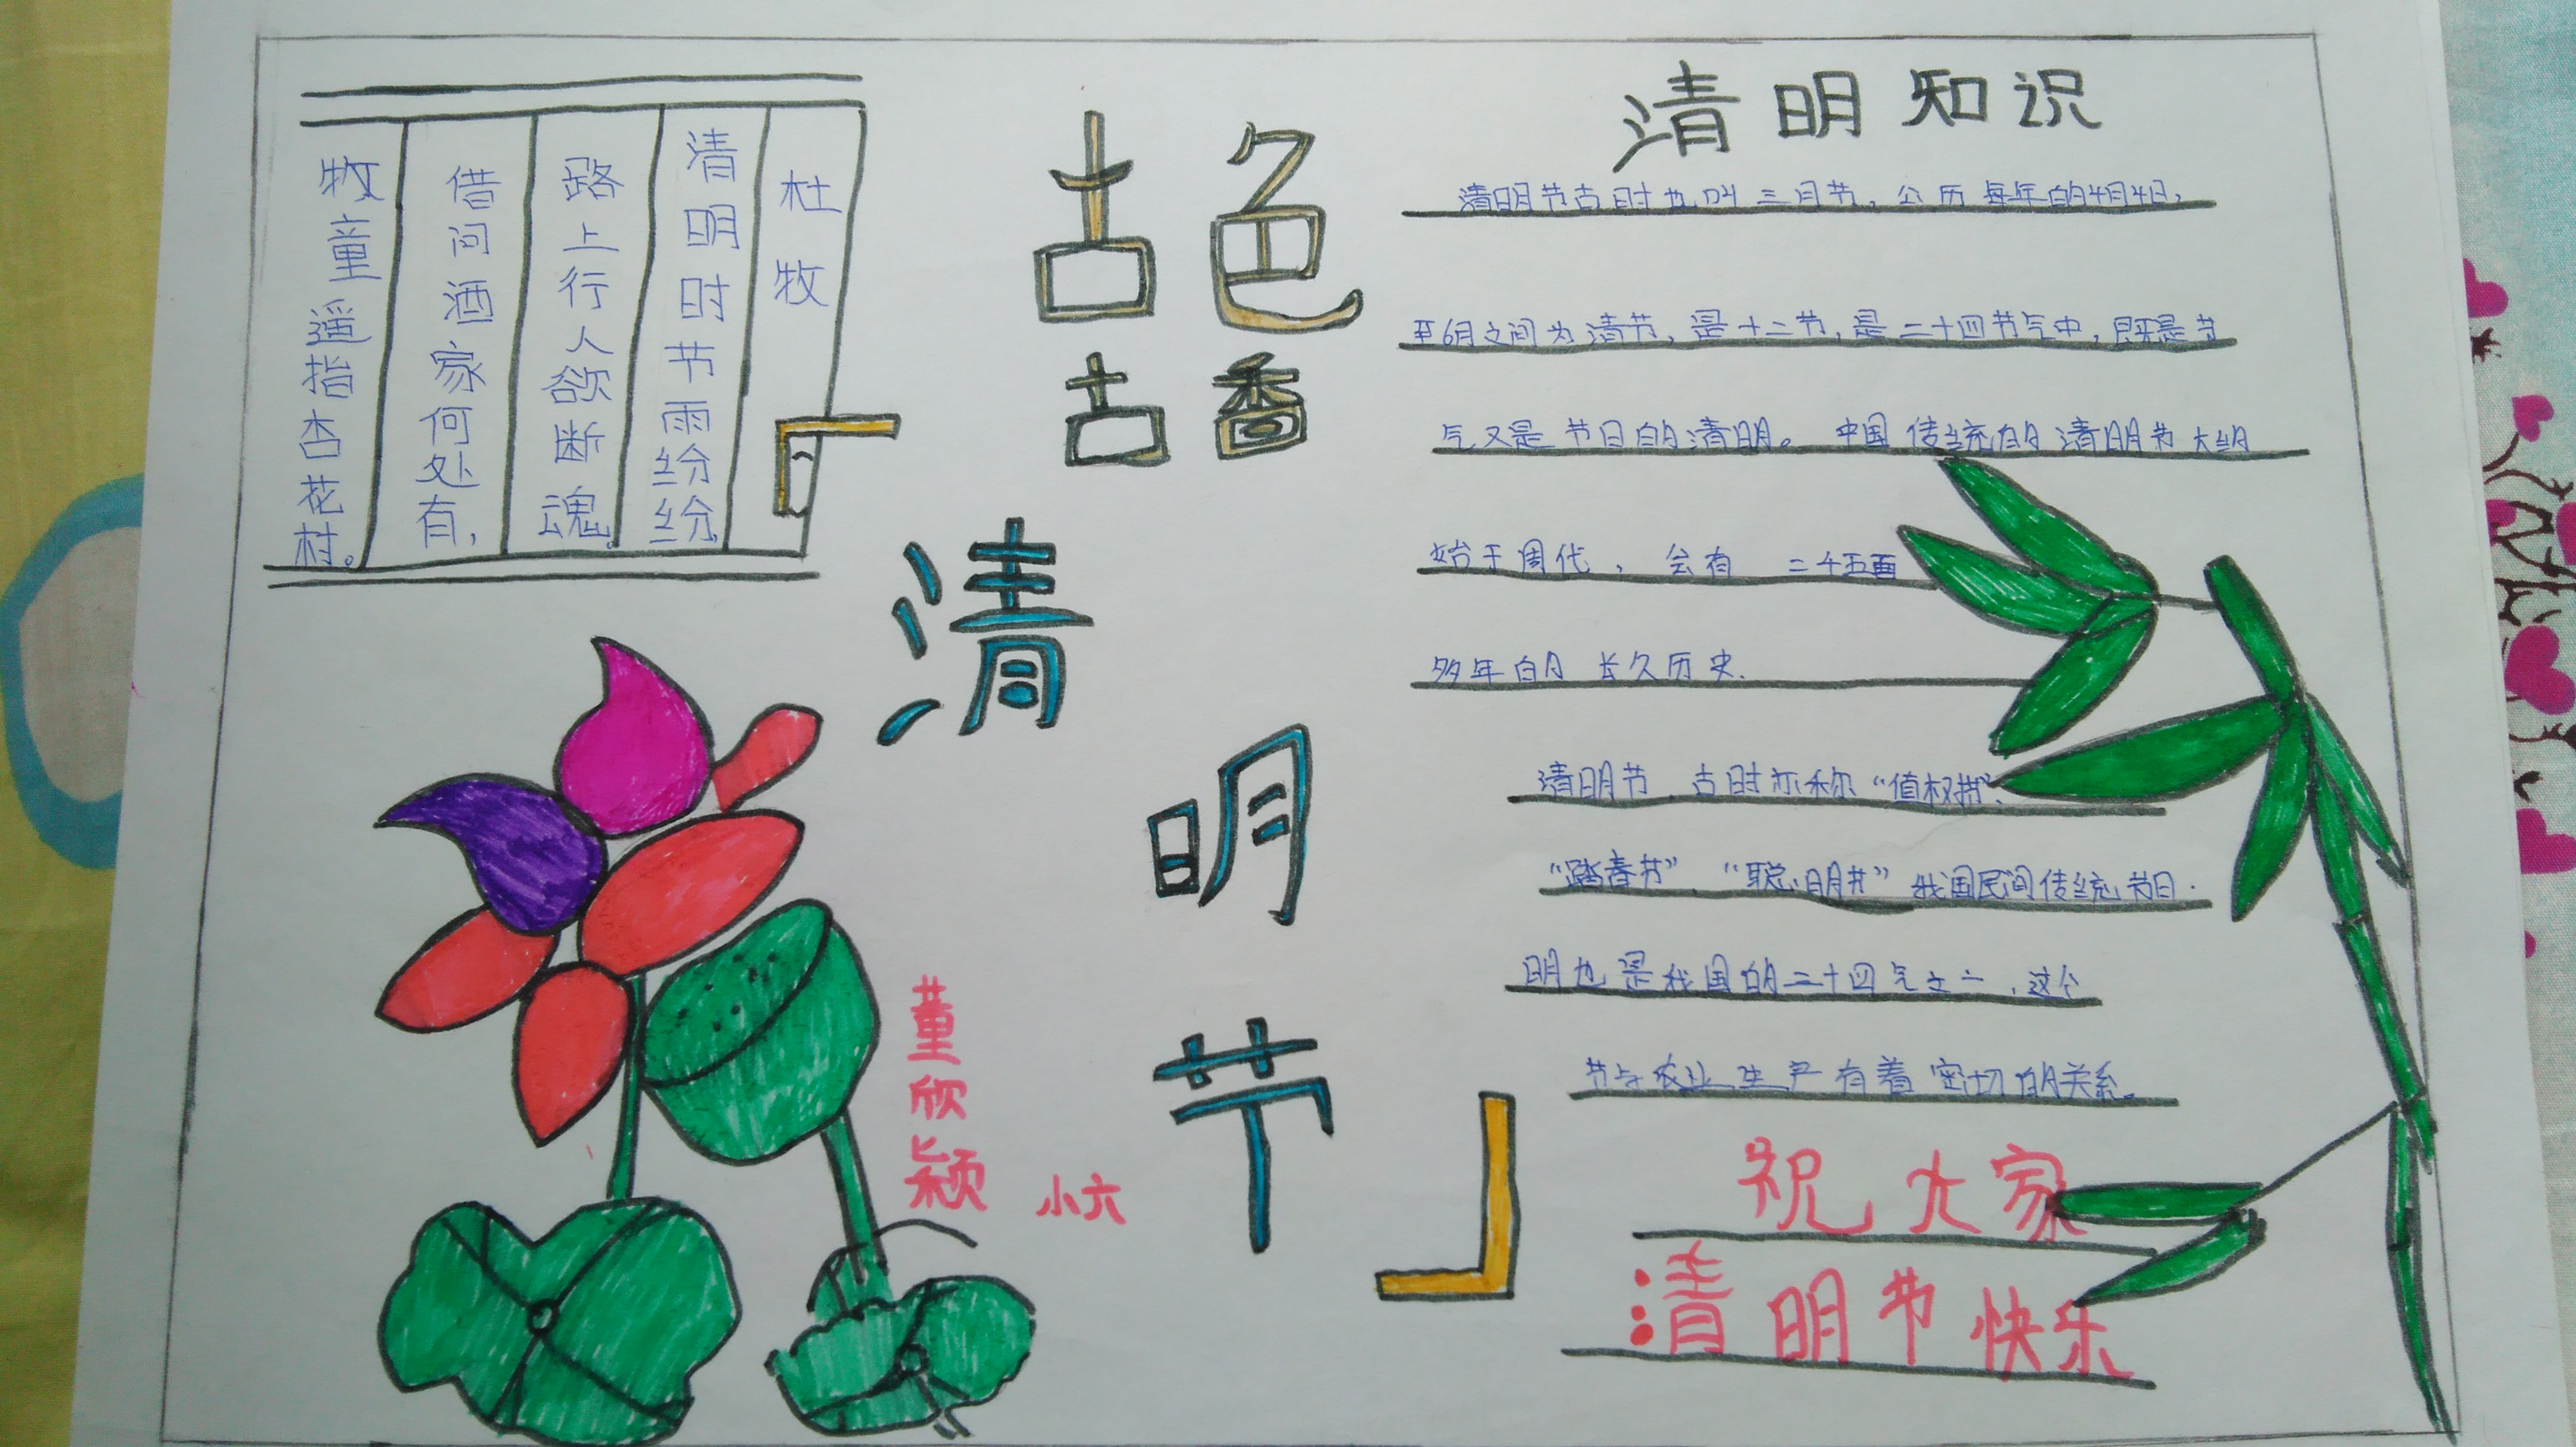 杜牧
清明时节雨纷纷,
路上行人欲断魂。
借问酒家何处有,
牧童遥指杏花村。
古色
古香
清
明
节
董欣颖
小六
清明知识
清明节古时也叫三月节,公历每年的4月4日,
至6月之间为清节,是十二节,是二十四节气中,既是节
气又是节日的清明。中国传统的清明节大约
始于周代,会有二千五百
多年的长久历史.
清明节,古时亦称“值权拼”、
“踏春节”、“聪明节”我国民间传统节日.
明也是我国的二十四气之一,这个
节与农业生产有着密切的关系。
祝大家
清明节快乐